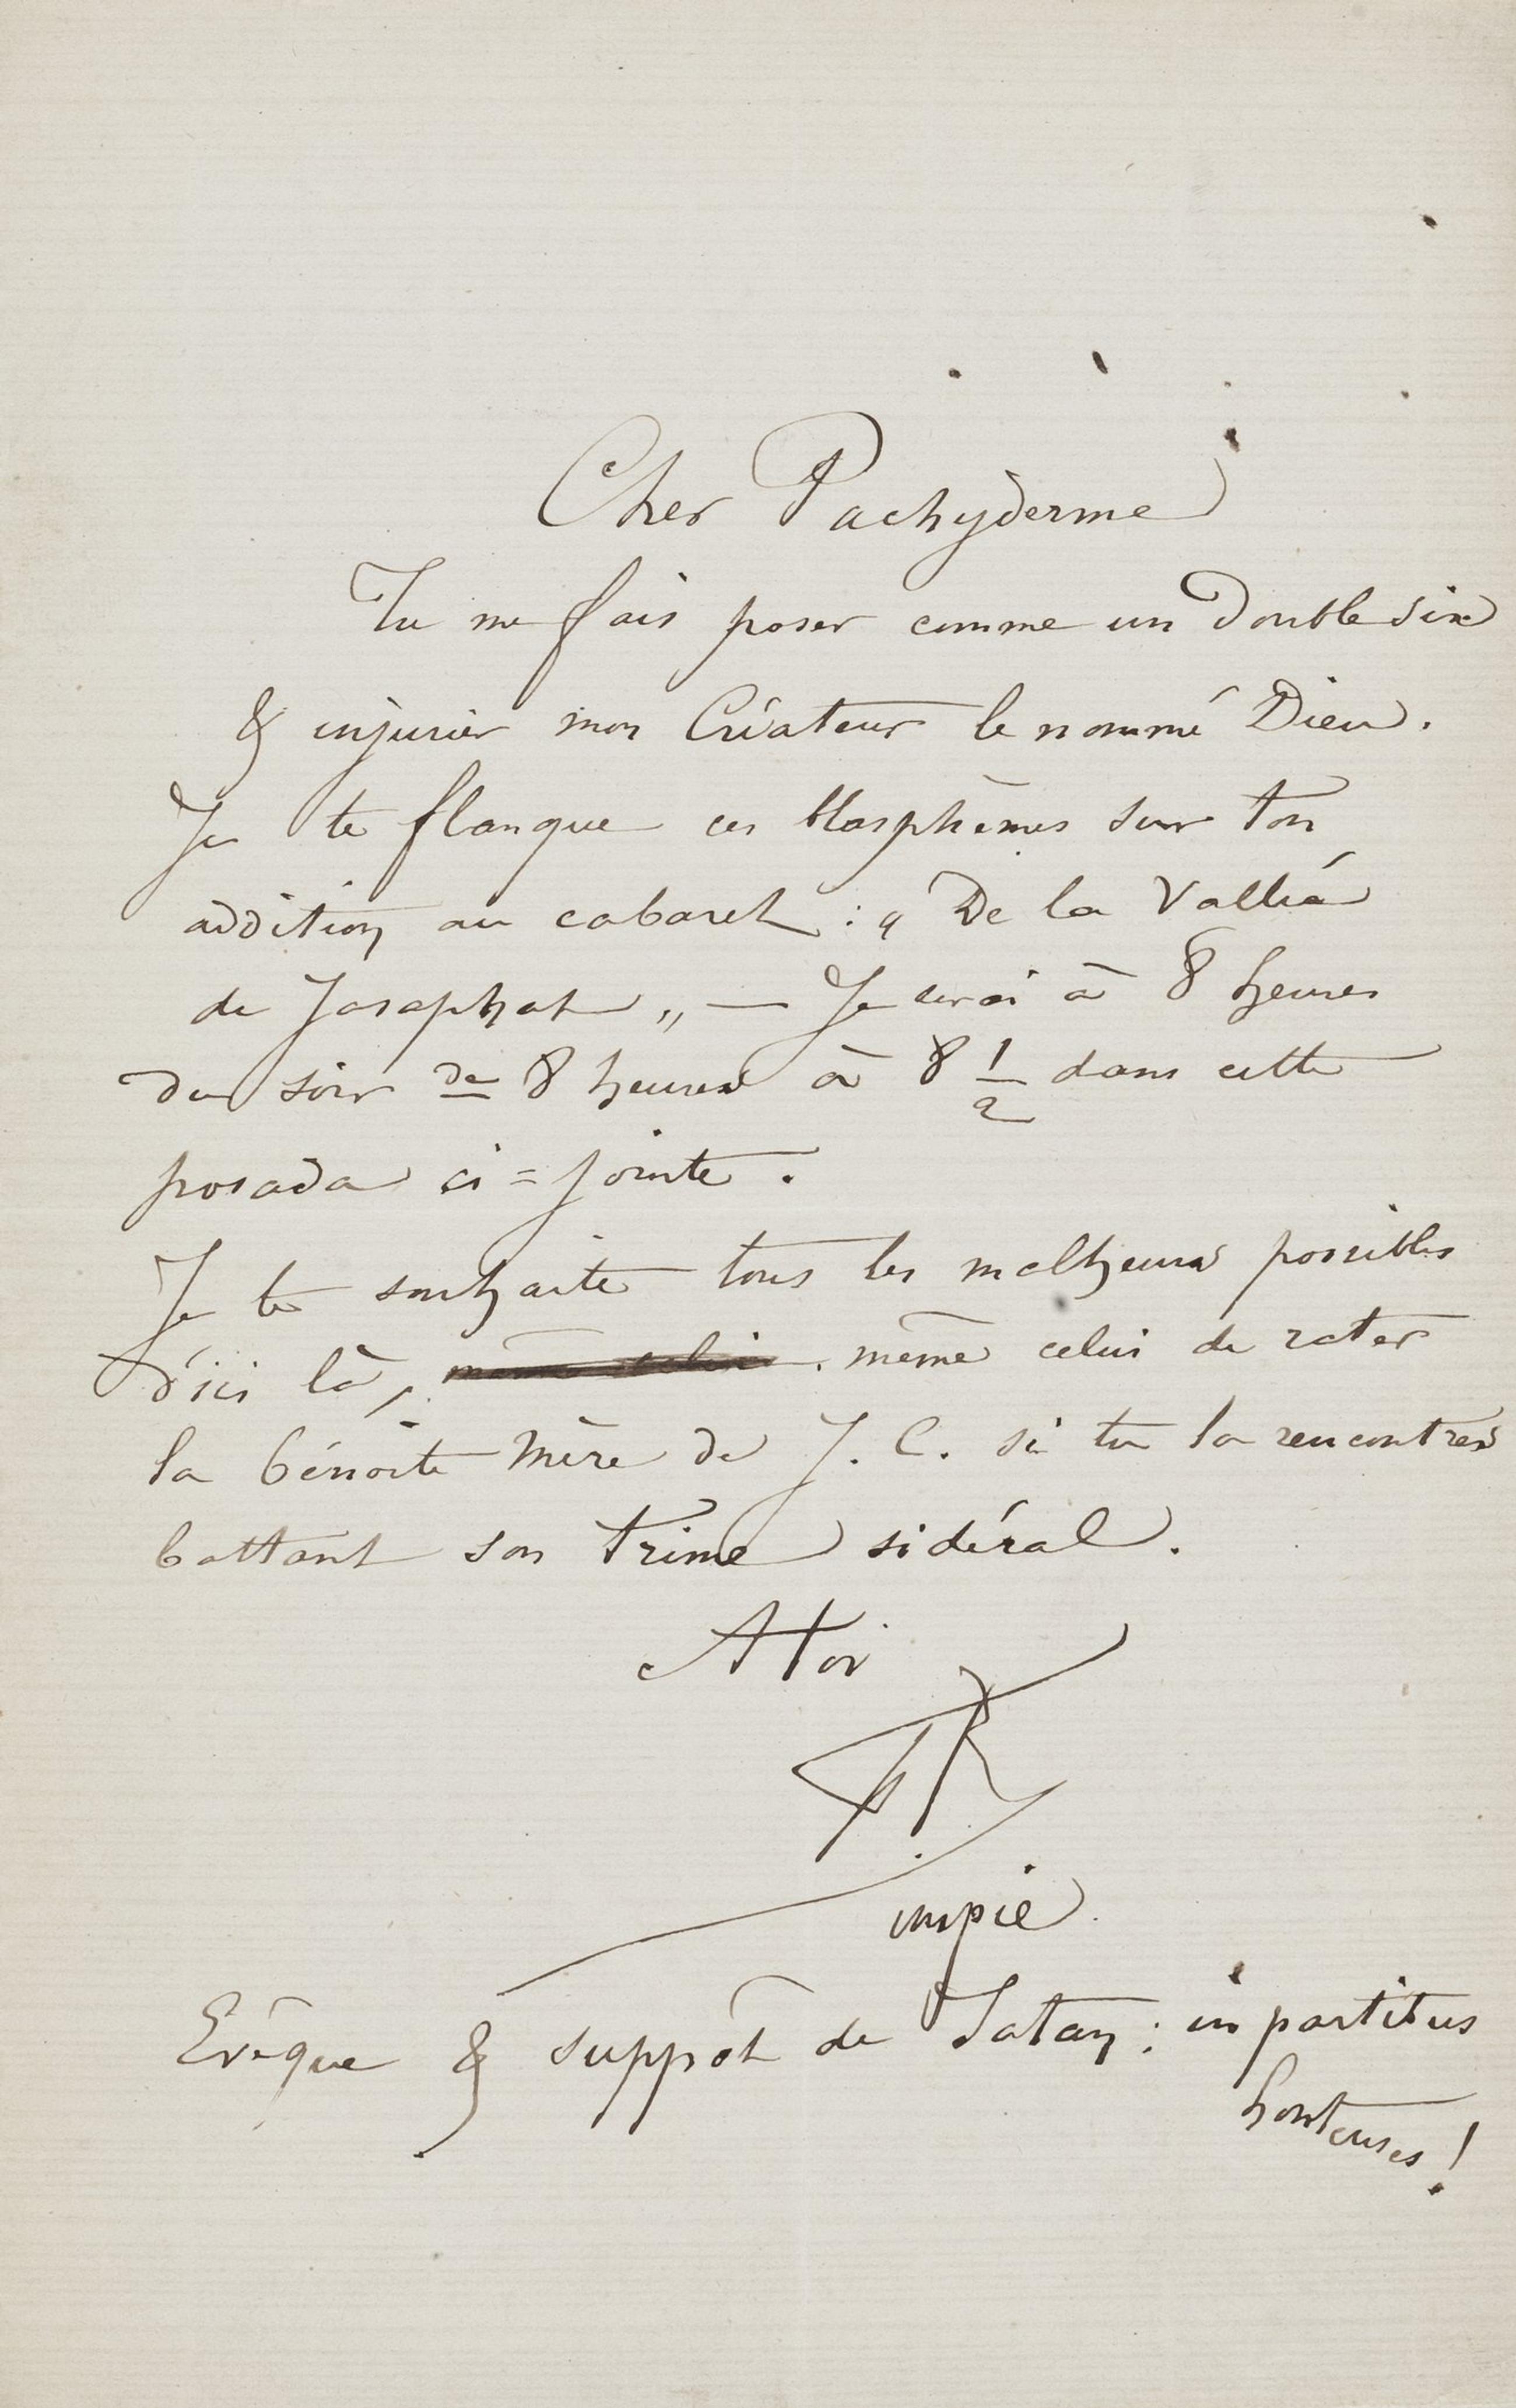 Cher Pachyderme
Tu me fais poser comme un Double six
& injurier mon Créateur le nommé Dieu.
Je te flanque ces blasphèmes sur ton
addition au cabaret : „ De la Vallée
de Josaphat „ — Je serai à 8 heures
du soir de 8 heures à 8 1/2 dans cette
posada ci=jointe.
Je te souhaite tous les malheurs possibles
d'ici là, même celui de rater
la bénoite Mère de J. C. si tu la rencontres
battant son trime sidéral.
A toi
FR
impie.
Evêque & suppôt de Satan : in partibus
honteuses !